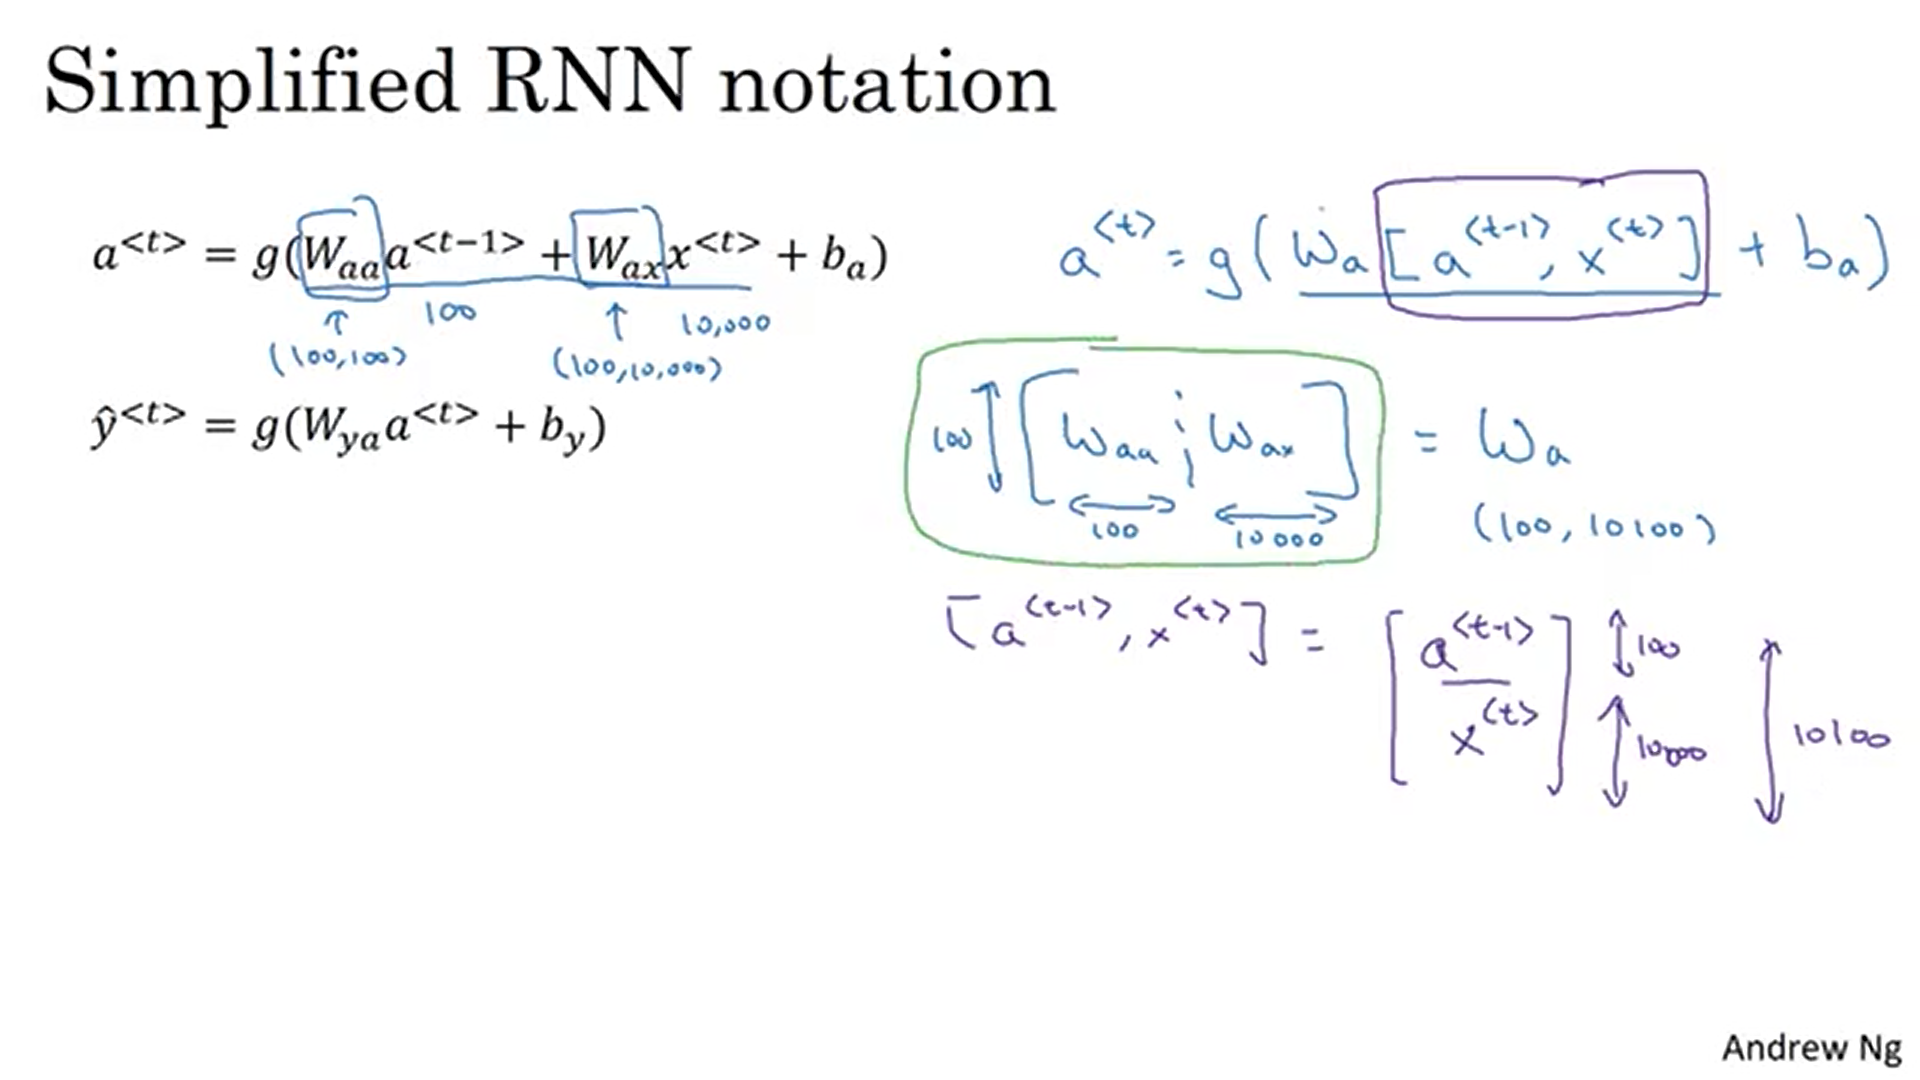 Simplified RNN notation
a<t> = g(Waa a<t−1> + Wax x<t> + ba)
↑ 100 ↑ 10,000
(100,100) (100,10,000)
ŷ<t> = g(Wya a<t> + by)
a<t> = g(Wa [a<t-1>, x<t>] + ba)
100 [Waa ¦ Wax] = Wa
100 10000 (100, 10100)
[a<t-1>, x<t>] = [a<t-1> 100
x<t>] 10000 10100
Andrew Ng